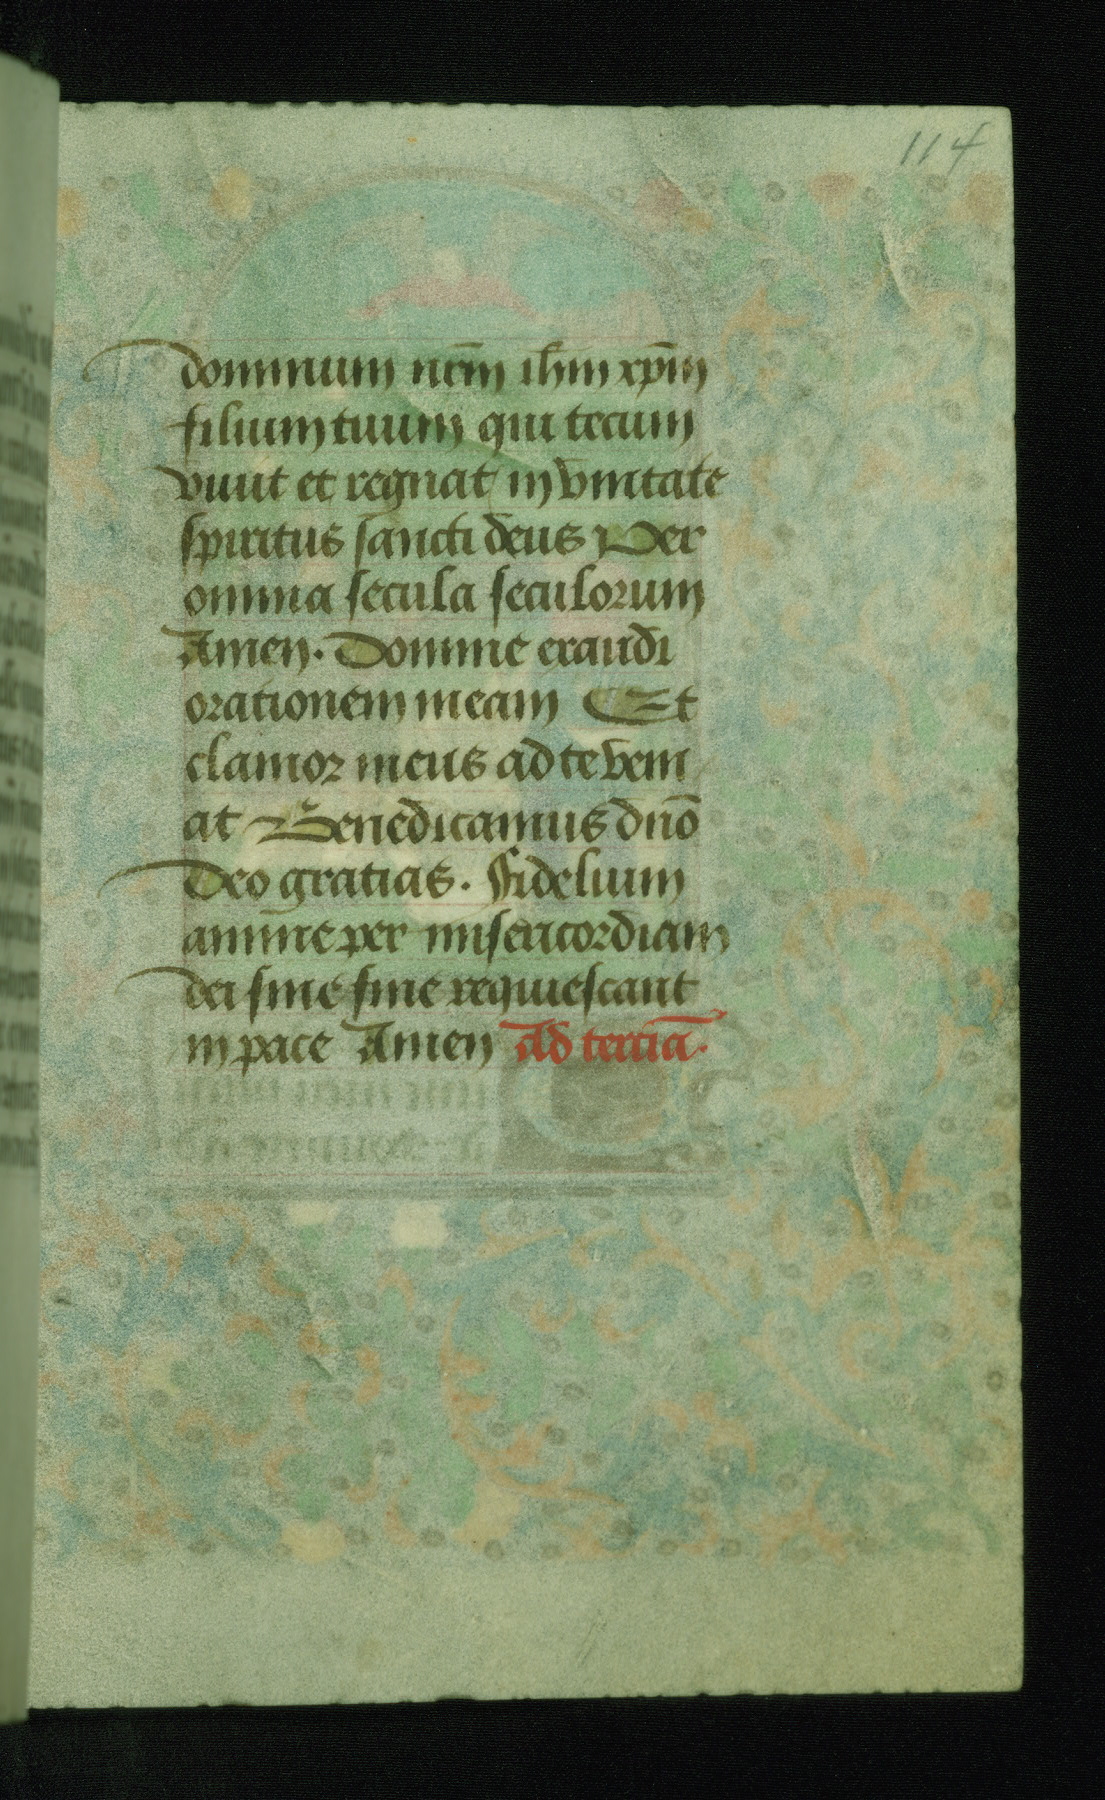 114
dominum nr̄m ihm xp̄m
filium tuum qui tecum
viuit et regnat in vnitate
spiritus sancti deus Per
omnia secula seculorum
Amen. Domine exaudi
orationem meam Et
clamor meus ad te veni
at Benedicamus dño
Deo gratias. Fidelium
anime per misericordiam
dei sine fine requiescant
in pace Amen Ad terciā.